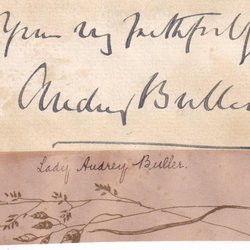 Yours very faithfully
Audrey Buller
Lady Audrey Buller.